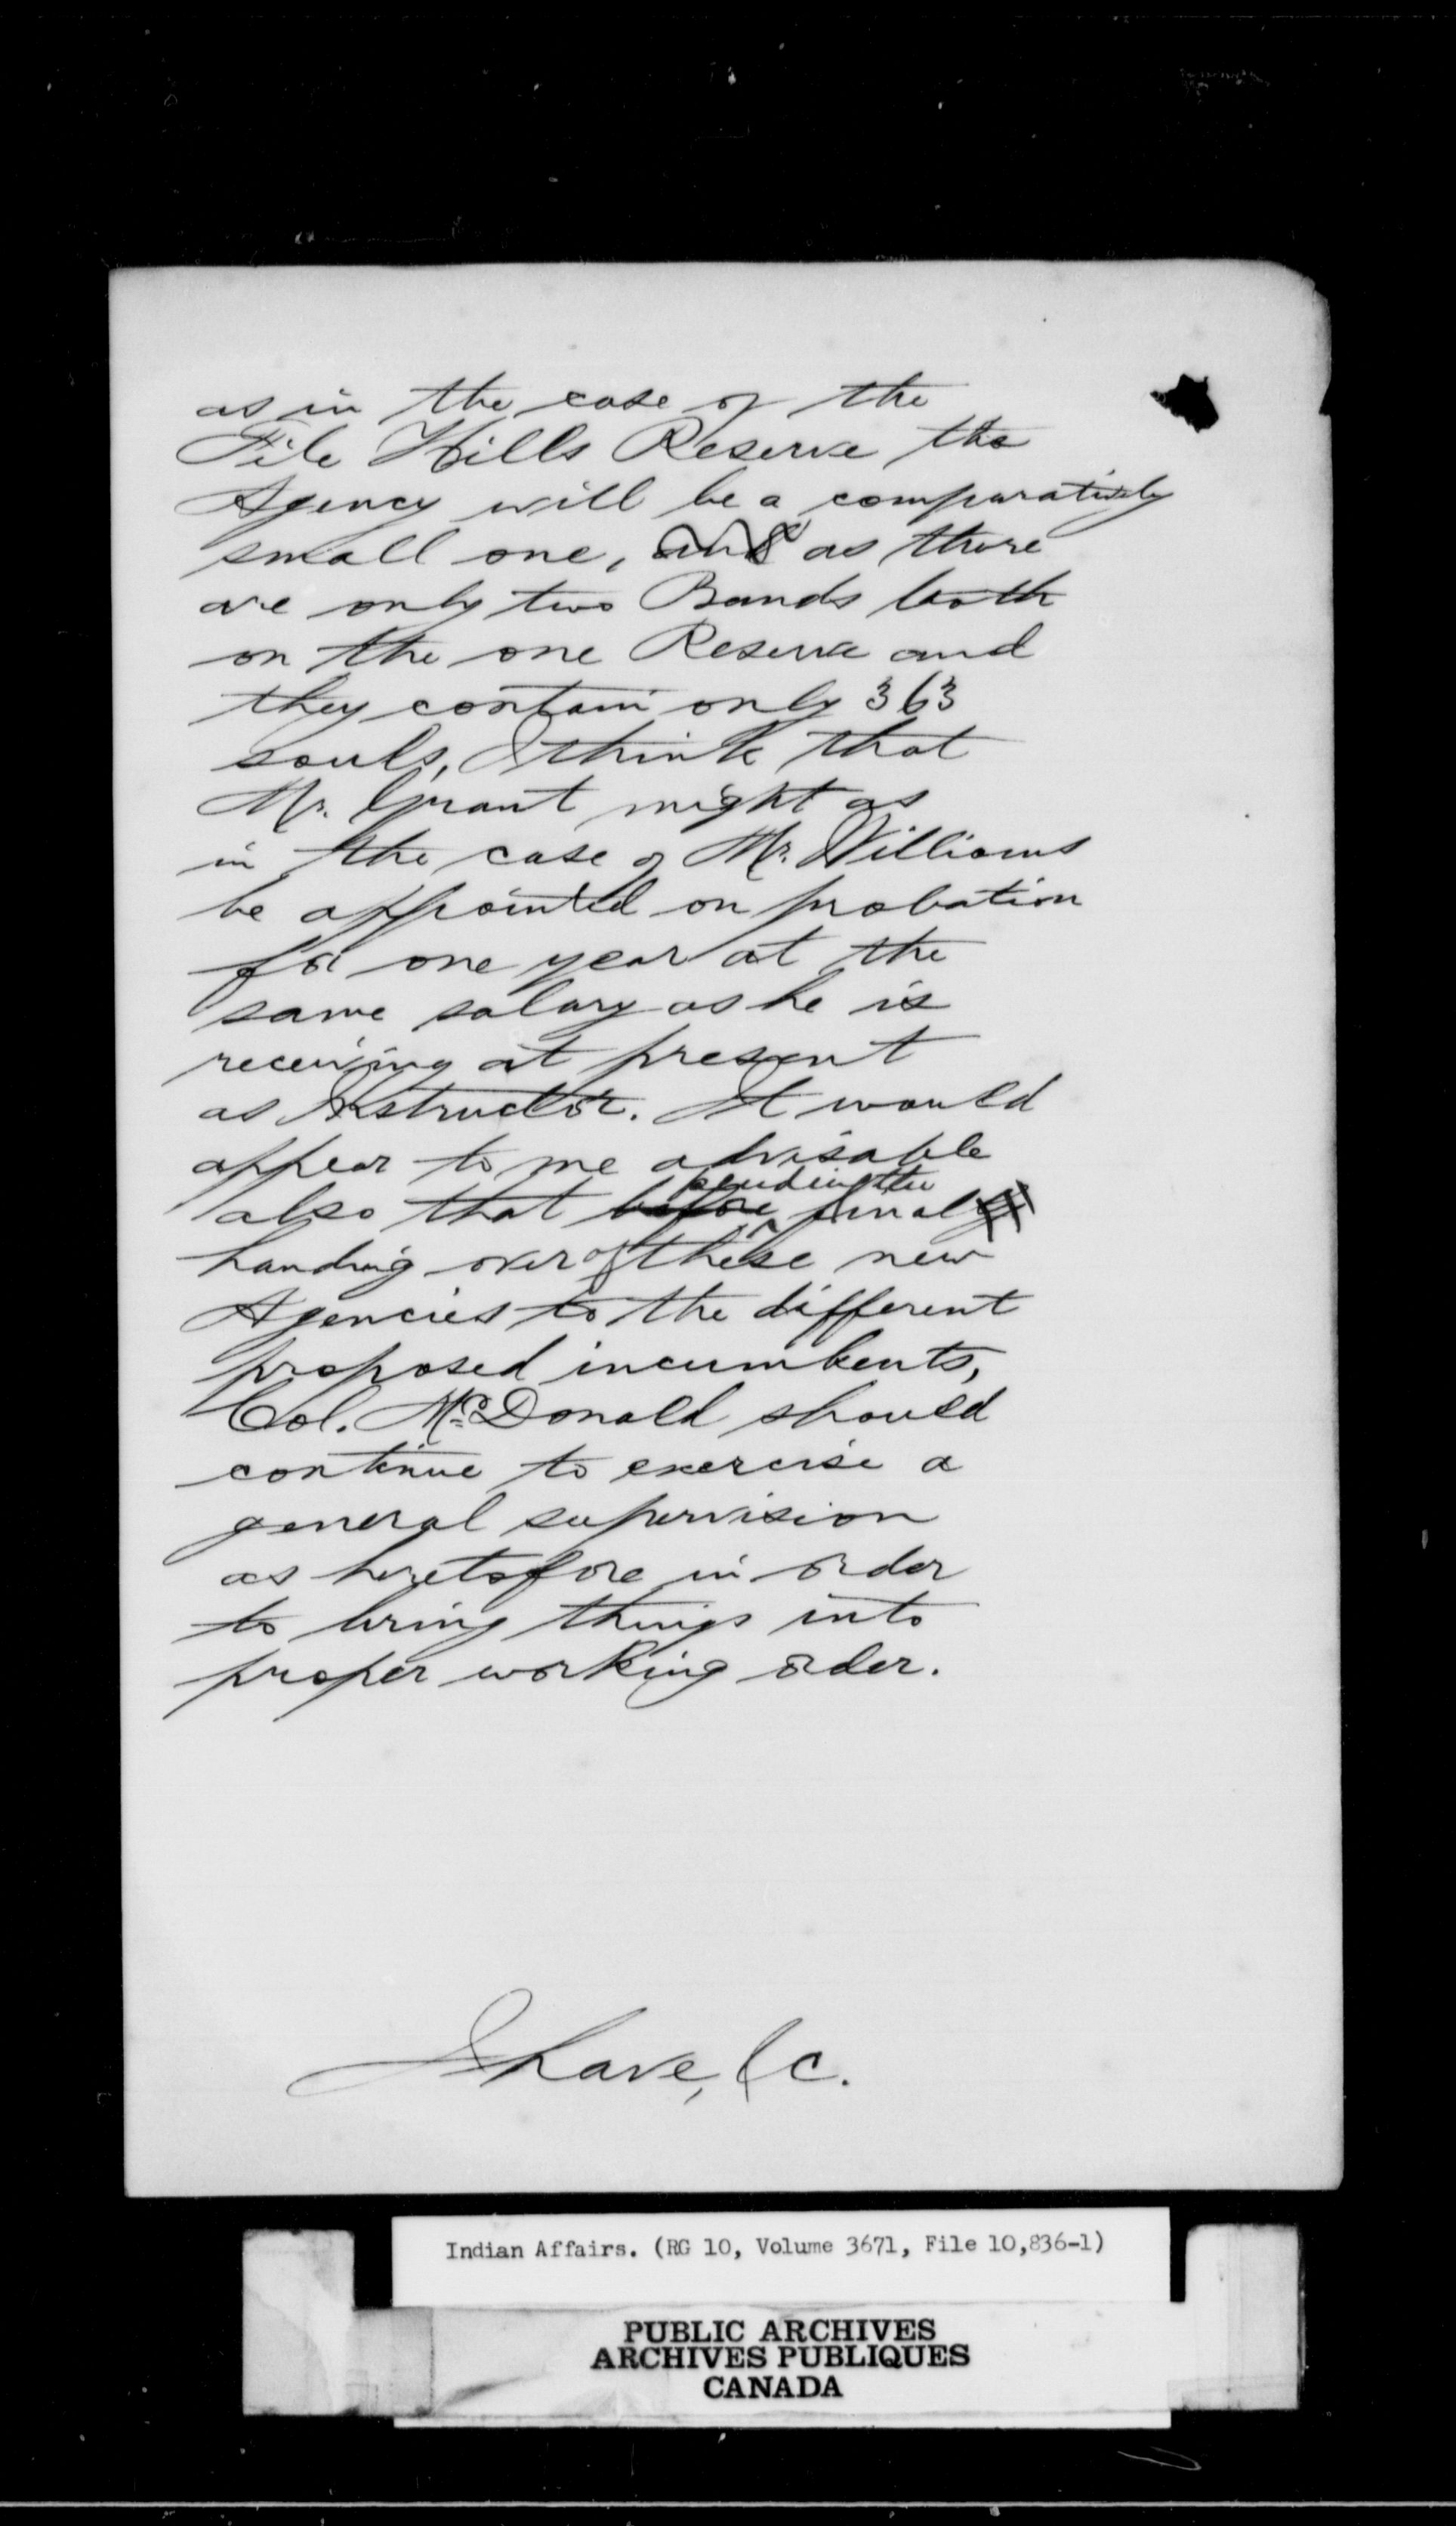 as in the case of the
File Hills Reserve the
Agency will be a comparatively
small one, and as there
are only two Bands both
on the one Reserve and
they contain only 363
souls, I think that
Mr. Grant might as
in the case of Mr. Williams
be appointed on probation
for one year at the
same salary as he is
receiving at present
as Instructor. It would
appear to me advisable
pending the
also that before final
handing over of these new
Agencies to the different
proposed incumbents,
Col. McDonald should
continue to exercise a
general supervision
as heretofore in order
to bring things into
proper working order.
I have, &c.
Indian Affairs. (RG 10, Volume 3671, File 10,836-1)
PUBLIC ARCHIVES
ARCHIVES PUBLIQUES
CANADA